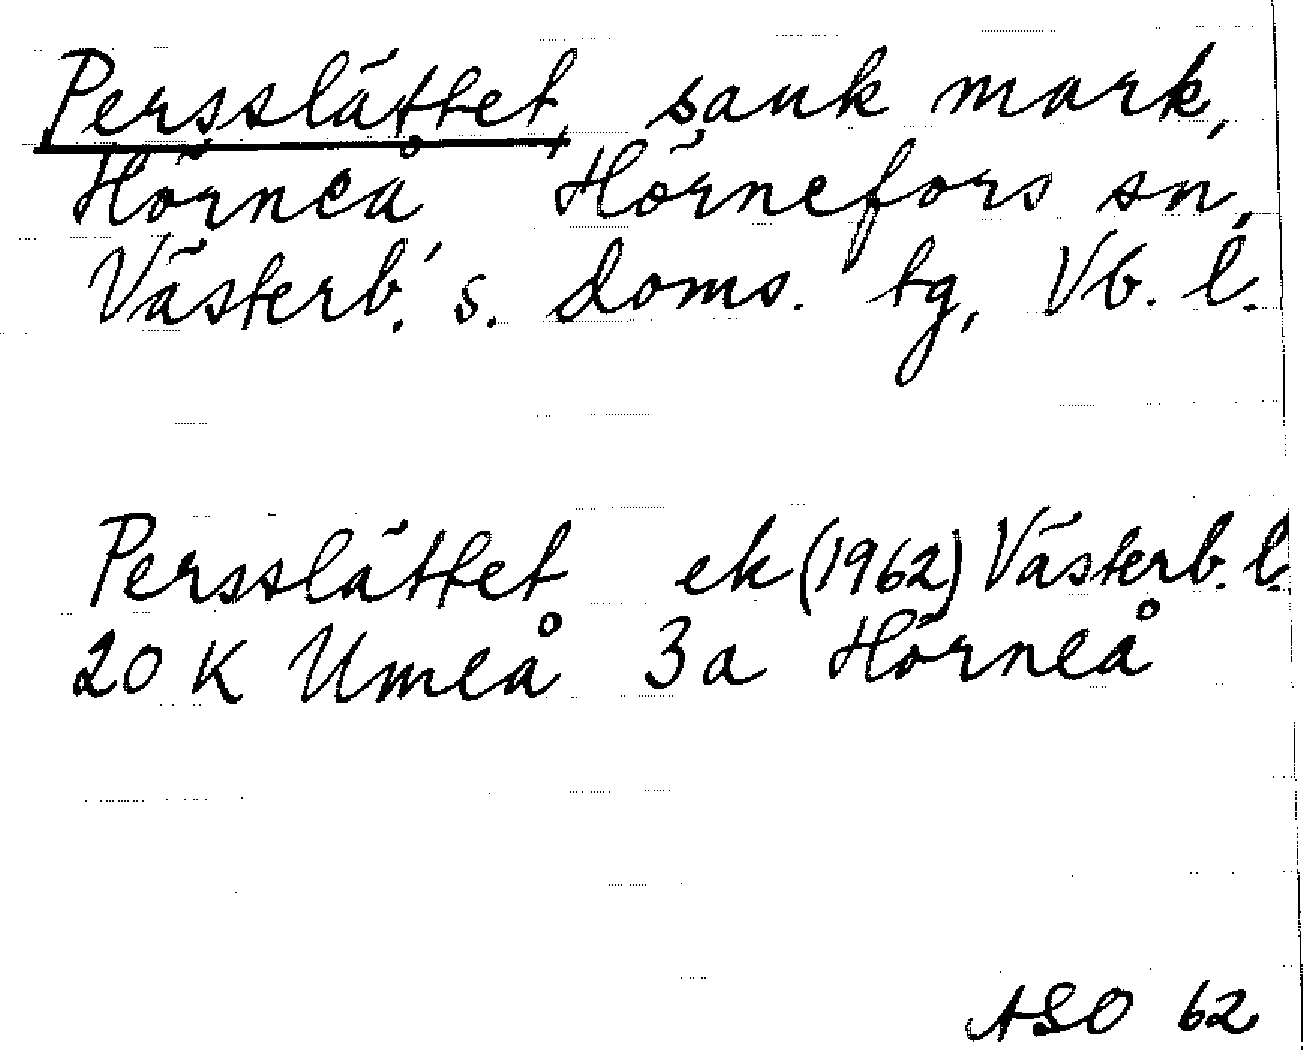 Persslåttet, sank mark,
Hörneå Hörnefors sn,
Västerb:s s. doms. tg, Vb. l.
Persslåttet ek (1962) Västerb. l.
20 K Umeå 3a Hörneå
ASO 62